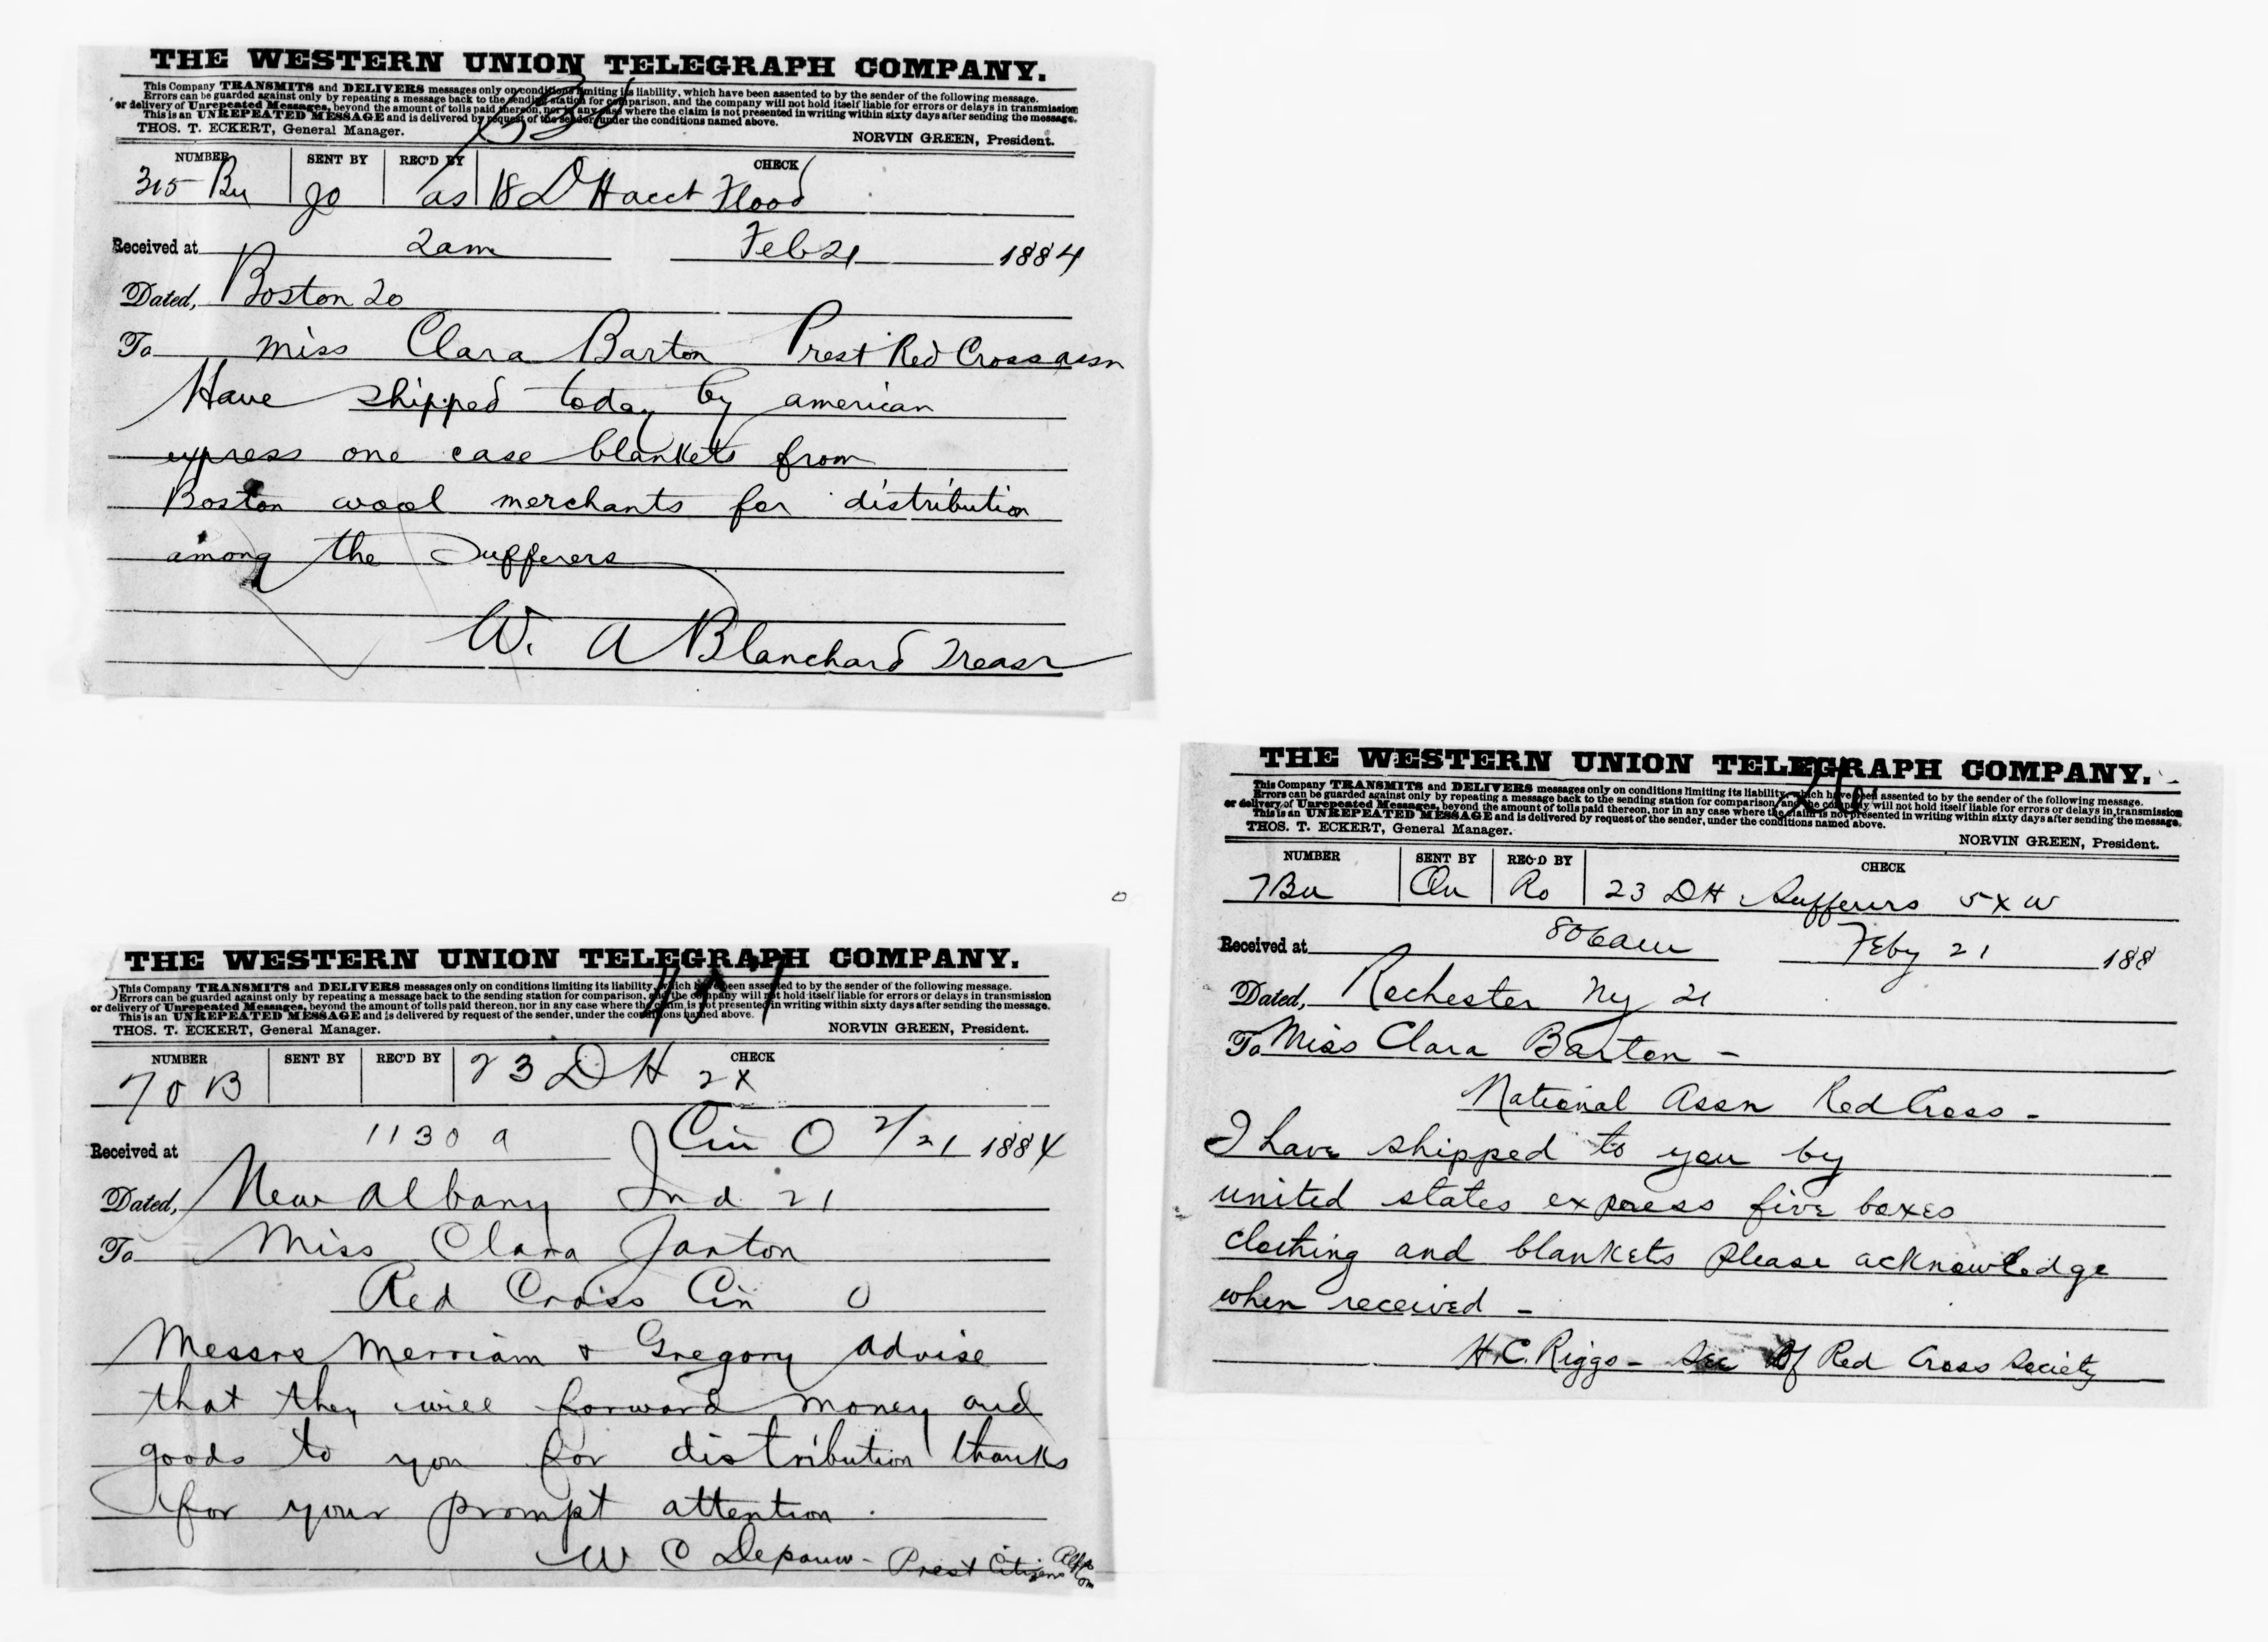 THE WESTERN UNION TELEGRAPH COMPANY.
This Company TRANSMITS and DELIVERS messages only on conditions limiting its liability, which have been assented to by the sender of the following message.
Errors can be guarded against only by repeating a message back to the sending station for comparison, and the company will not hold itself liable for errors or delays in transmission
or delivery of Unrepeated Messages, beyond the amount of tolls paid thereon, nor in any case where the claim is not presented in writing within sixty days after sending the message.
This is an UNREPEATED MESSAGE and is delivered by request of the sender, under the conditions named above.
THOS. T. ECKERT, General Manager.
NORVIN GREEN, President.
NUMBER SENT BY REC'D BY CHECK
315 Bu go as 18 DH acct Flood
Received at 2am Feb 21 1884
Dated, Boston 20
To Miss Clara Barton Prest Red Cross assn
Have shipped today by american
express one case blankets from
Boston wool merchants for distribution
among the Sufferers
W. A Blanchard Treasr
THE WESTERN UNION TELEGRAPH COMPANY.
This Company TRANSMITS and DELIVERS messages only on conditions limiting its liability, which have been assented to by the sender of the following message.
Errors can be guarded against only by repeating a message back to the sending station for comparison, and the company will not hold itself liable for errors or delays in transmission
or delivery of Unrepeated Messages, beyond the amount of tolls paid thereon, nor in any case where the claim is not presented in writing within sixty days after sending the message.
This is an UNREPEATED MESSAGE and is delivered by request of the sender, under the conditions named above.
THOS. T. ECKERT, General Manager.
NORVIN GREEN, President.
NUMBER SENT BY REC'D BY CHECK
7 Bu Qu Ro 23 DH Sufferers 5 x w
Received at 806am Feby 21 188
Dated, Rochester Ny 21
To Miss Clara Barton -
National Assn Red Cross -
I have shipped to you by
united states express five boxes
clothing and blankets please acknowledge
when received -
H.C. Riggs - Sec Of Red Cross Society
THE WESTERN UNION TELEGRAPH COMPANY.
This Company TRANSMITS and DELIVERS messages only on conditions limiting its liability, which have been assented to by the sender of the following message.
Errors can be guarded against only by repeating a message back to the sending station for comparison, and the company will not hold itself liable for errors or delays in transmission
or delivery of Unrepeated Messages, beyond the amount of tolls paid thereon, nor in any case where the claim is not presented in writing within sixty days after sending the message.
This is an UNREPEATED MESSAGE and is delivered by request of the sender, under the conditions named above.
THOS. T. ECKERT, General Manager.
NORVIN GREEN, President.
NUMBER SENT BY REC'D BY CHECK
70 B 23 DH 2X
Received at 1130 a Cin O 2/21 1884
Dated, New Albany Ind 21
To Miss Clara Janton
Red Cross Cin O
Messrs Merriam & Gregory advise
that they will forward money and
goods to you for distribution thanks
for your prompt attention.
W C Depauw - Prest Citizens Com